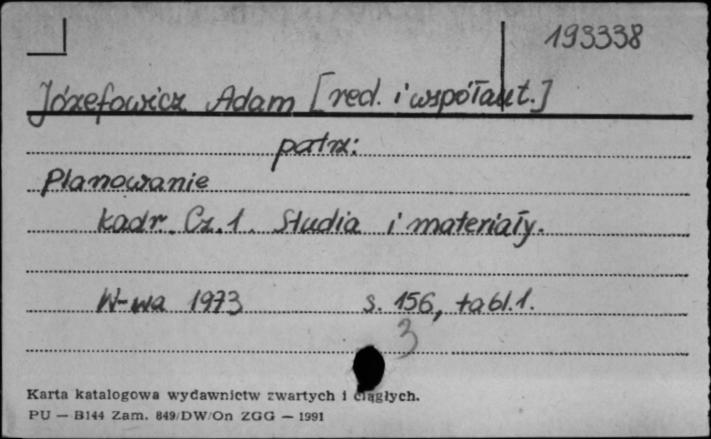 193338
Józefowicz Adam [red. i współaut.]
patrz:
Planowanie
kadr. Cz. 1. Studia i materiały.
W-wa 1973 s. 156, tabl. 1.
3
Karta katalogowa wydawnictw zwartych i ciągłych.
PU — B144 Zam. 849/DW/On ZGG — 1991